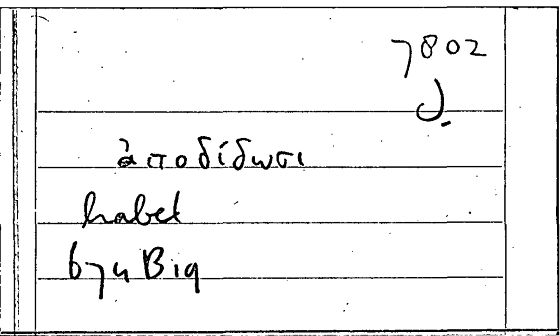 7802
J.
ἀποδίδωσι
habet
674 B19